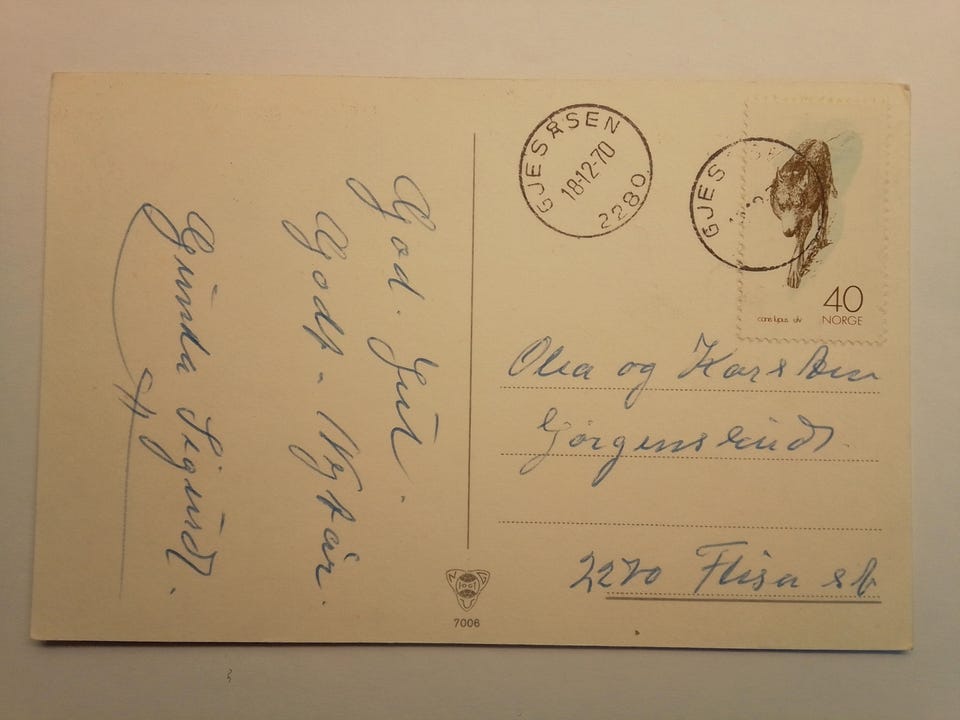 God. Jul.
Godt - Nyttår.
Gunda Sigurd.
GJESÅSEN
18-12-70
2280
GJES
40
NORGE
canis lupus ulv
Olea og Karsten
Gjørgenskud
2270 Flisa sb
7006